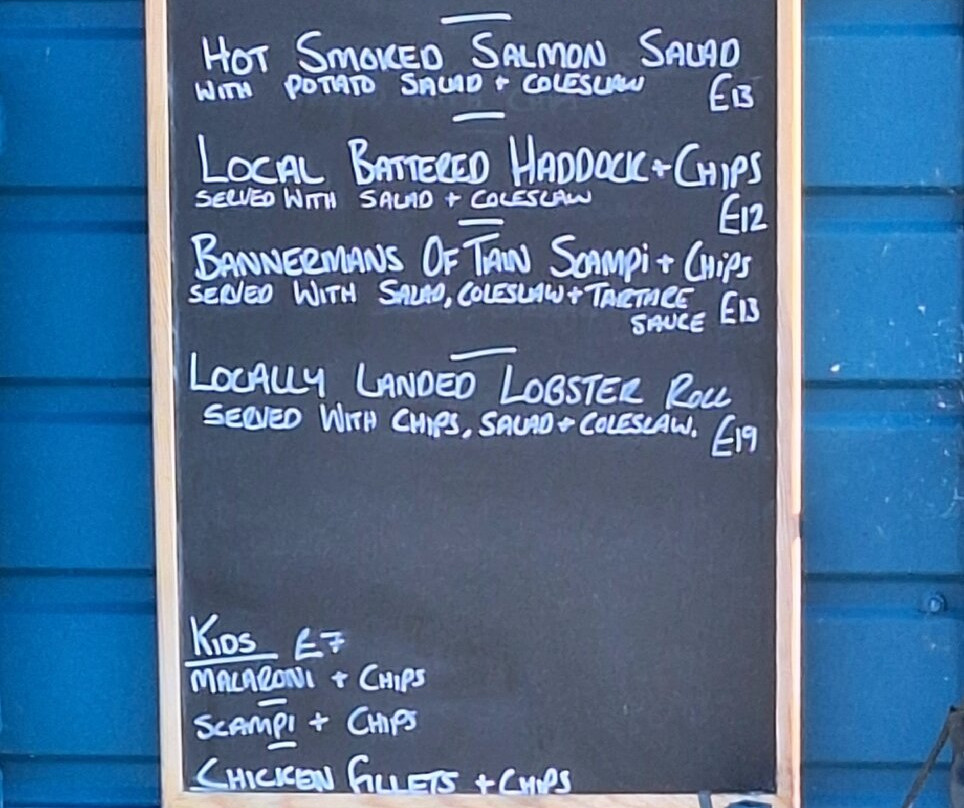 HOT SMOKED SALMON SALAD
WITH POTATO SALAD + COLESLAW £13
LOCAL BATTERED HADDOCK + CHIPS
SERVED WITH SALAD + COLESLAW £12
BANNERMANS OF TAIN SCAMPi + CHiPS
SERVED WITH SALAD, COLESLAW + TARTARE
SAUCE £13
LOCALLY LANDED LOBSTER ROLL
SERVED WITH CHIPS, SALAD + COLESLAW. £19
KIDS £7
MACARONI + CHIPS
SCAMPI + CHIPS
CHICKEN FILLETS + CHIPS